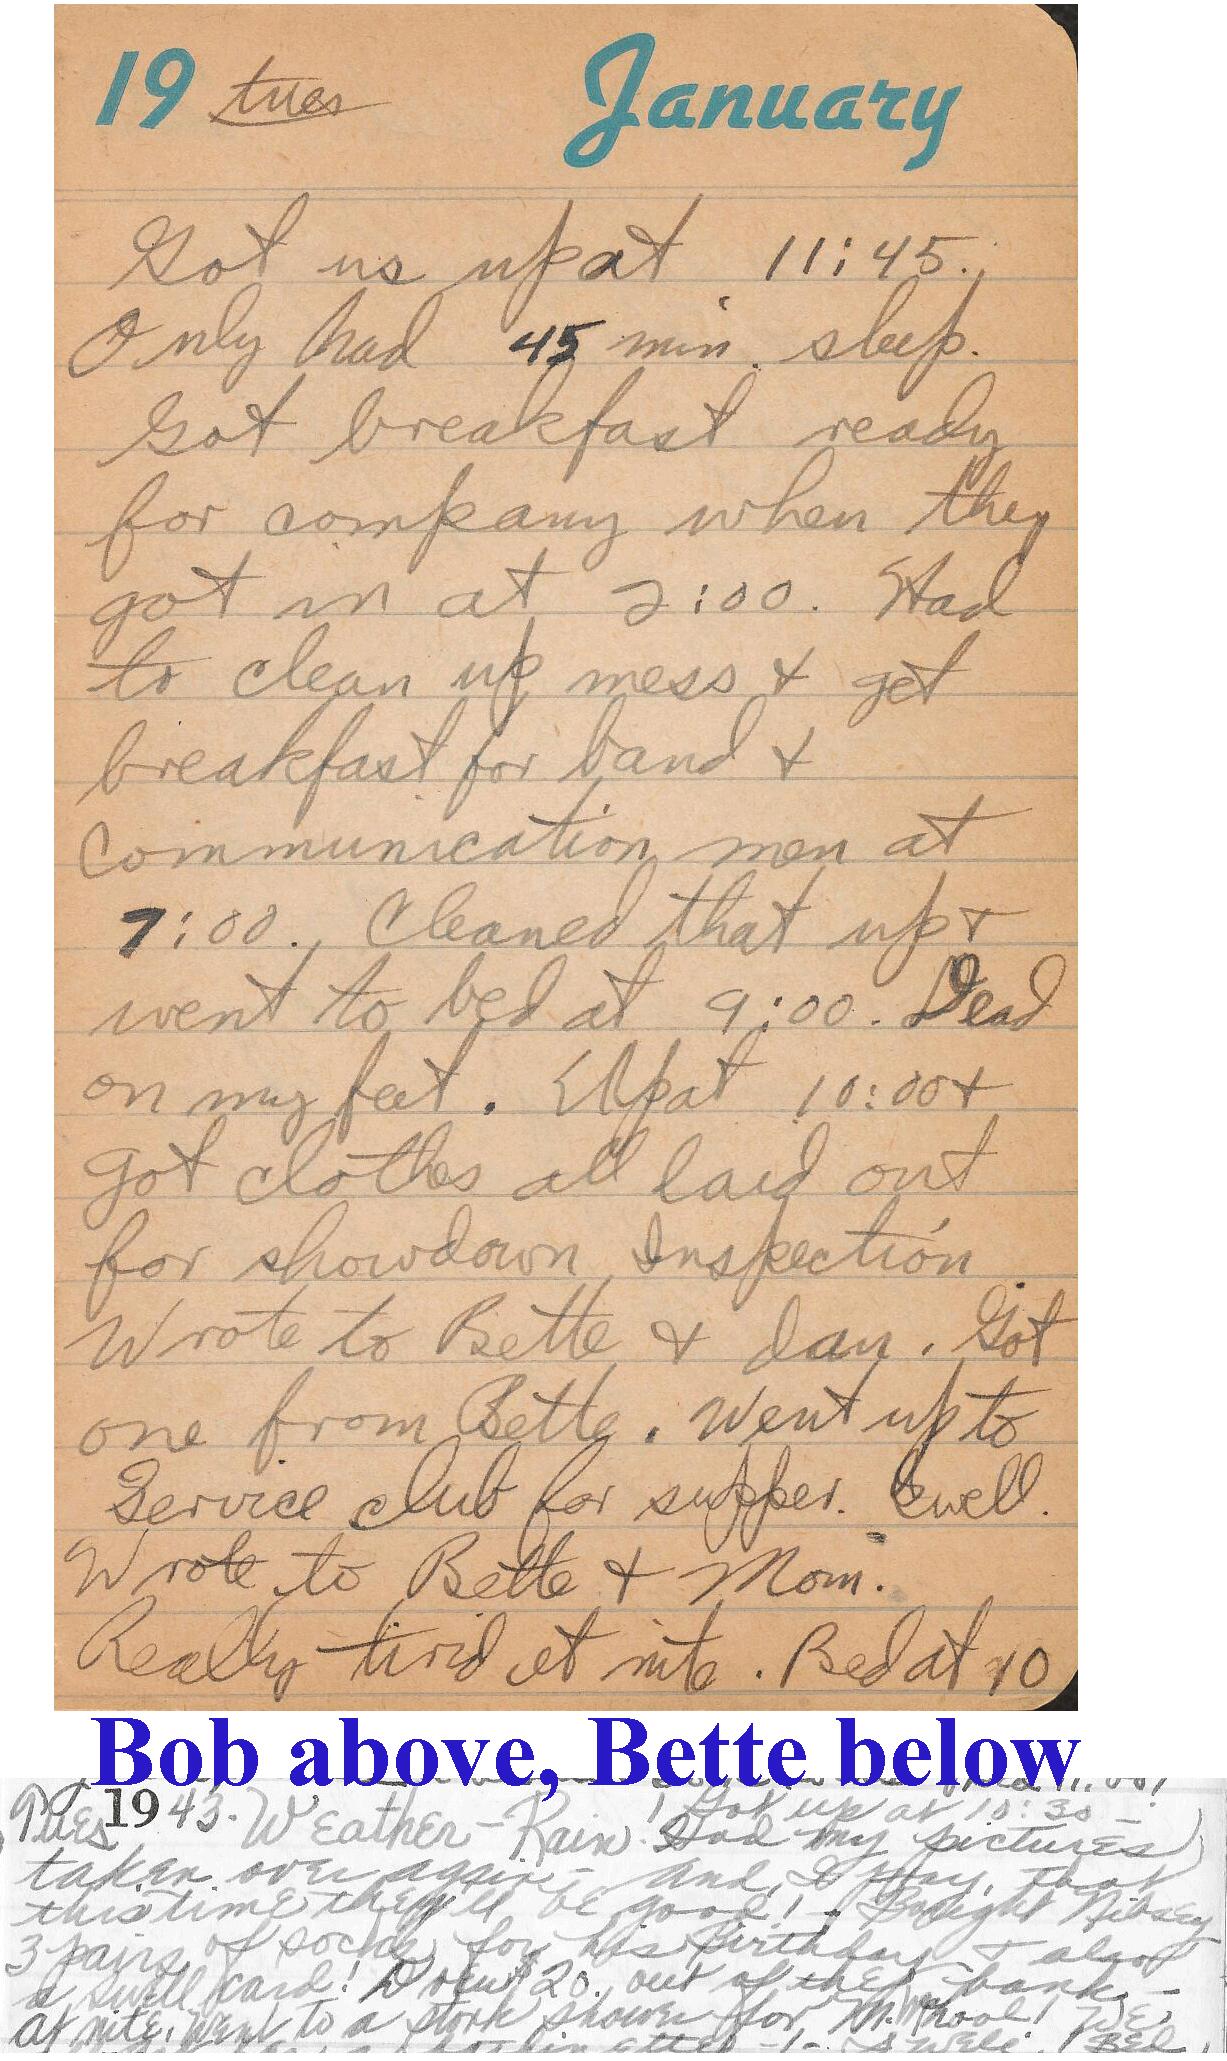 19 tues January
Got us up at 11:45.
Only had 45 min. sleep.
Got breakfast ready
for company when they
got in at 2:00. Had
to clean up mess &amp; get
breakfast for band &amp;
communication men at
7:00. Cleaned that up &amp;
went to bed at 9:00. Dead
on my feet. Up at 10:00 &amp;
got clothes all laid out
for showdown Inspection
Wrote to Bette &amp; Dan. Got
one from Bette. Went up to
Service club for supper. Swell.
Wrote to Bette &amp; Mom.
Really tird at nite. Bed at 10
Bob above, Bette below
Tues 1943. Weather - Rain. Got up at 10:30 -
Had my pictures
taken over again - and, I pray, that
this time they'll be good! - Bought
3 pairs of socks for his Birthday &amp; also
a swell card! Drew $20. out of the bank -
at nite, went to a stork shower for M. We